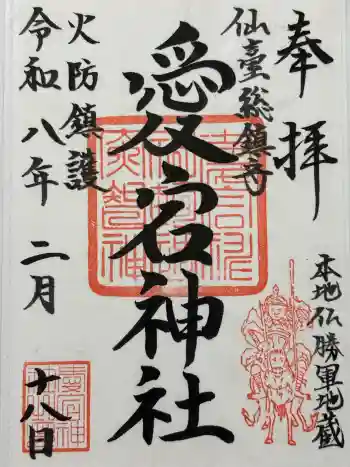 奉拝
仙臺総鎮守
愛宕神社
火防鎮護
令和八年
二月
十八日
本地仏勝軍地蔵